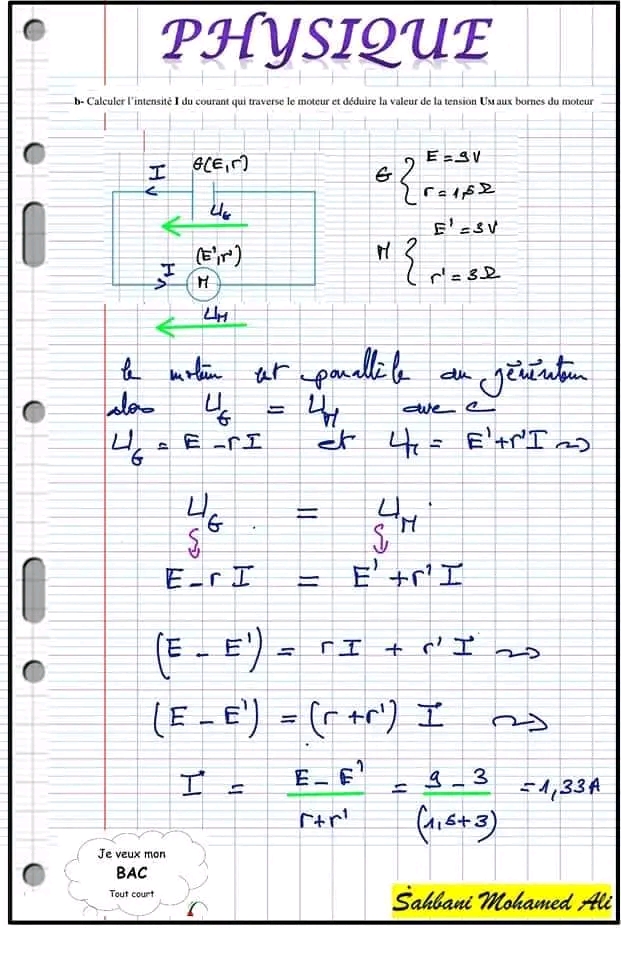 PHYSIQUE
b- Calculer l'intensité I du courant qui traverse le moteur et déduire la valeur de la tension UM aux bornes du moteur
I G(E,r) G { E = 9V
UG r = 1,5Ω
(E',r') M { E' = 3V
I M r' = 3Ω
UM
le moteur est parallèle au générateur
alors UG = UM avec
UG = E - rI et UM = E'+r'I ⇝
UG = UM
E - r I = E' + r' I
(E - E') = rI + r' I ⇝
(E - E') = (r + r') I ⇝
I = E - E' / r+r' = 9 - 3 / (1,5+3) = 1,33A
Je veux mon
BAC
Tout court
Sahbani Mohamed Ali